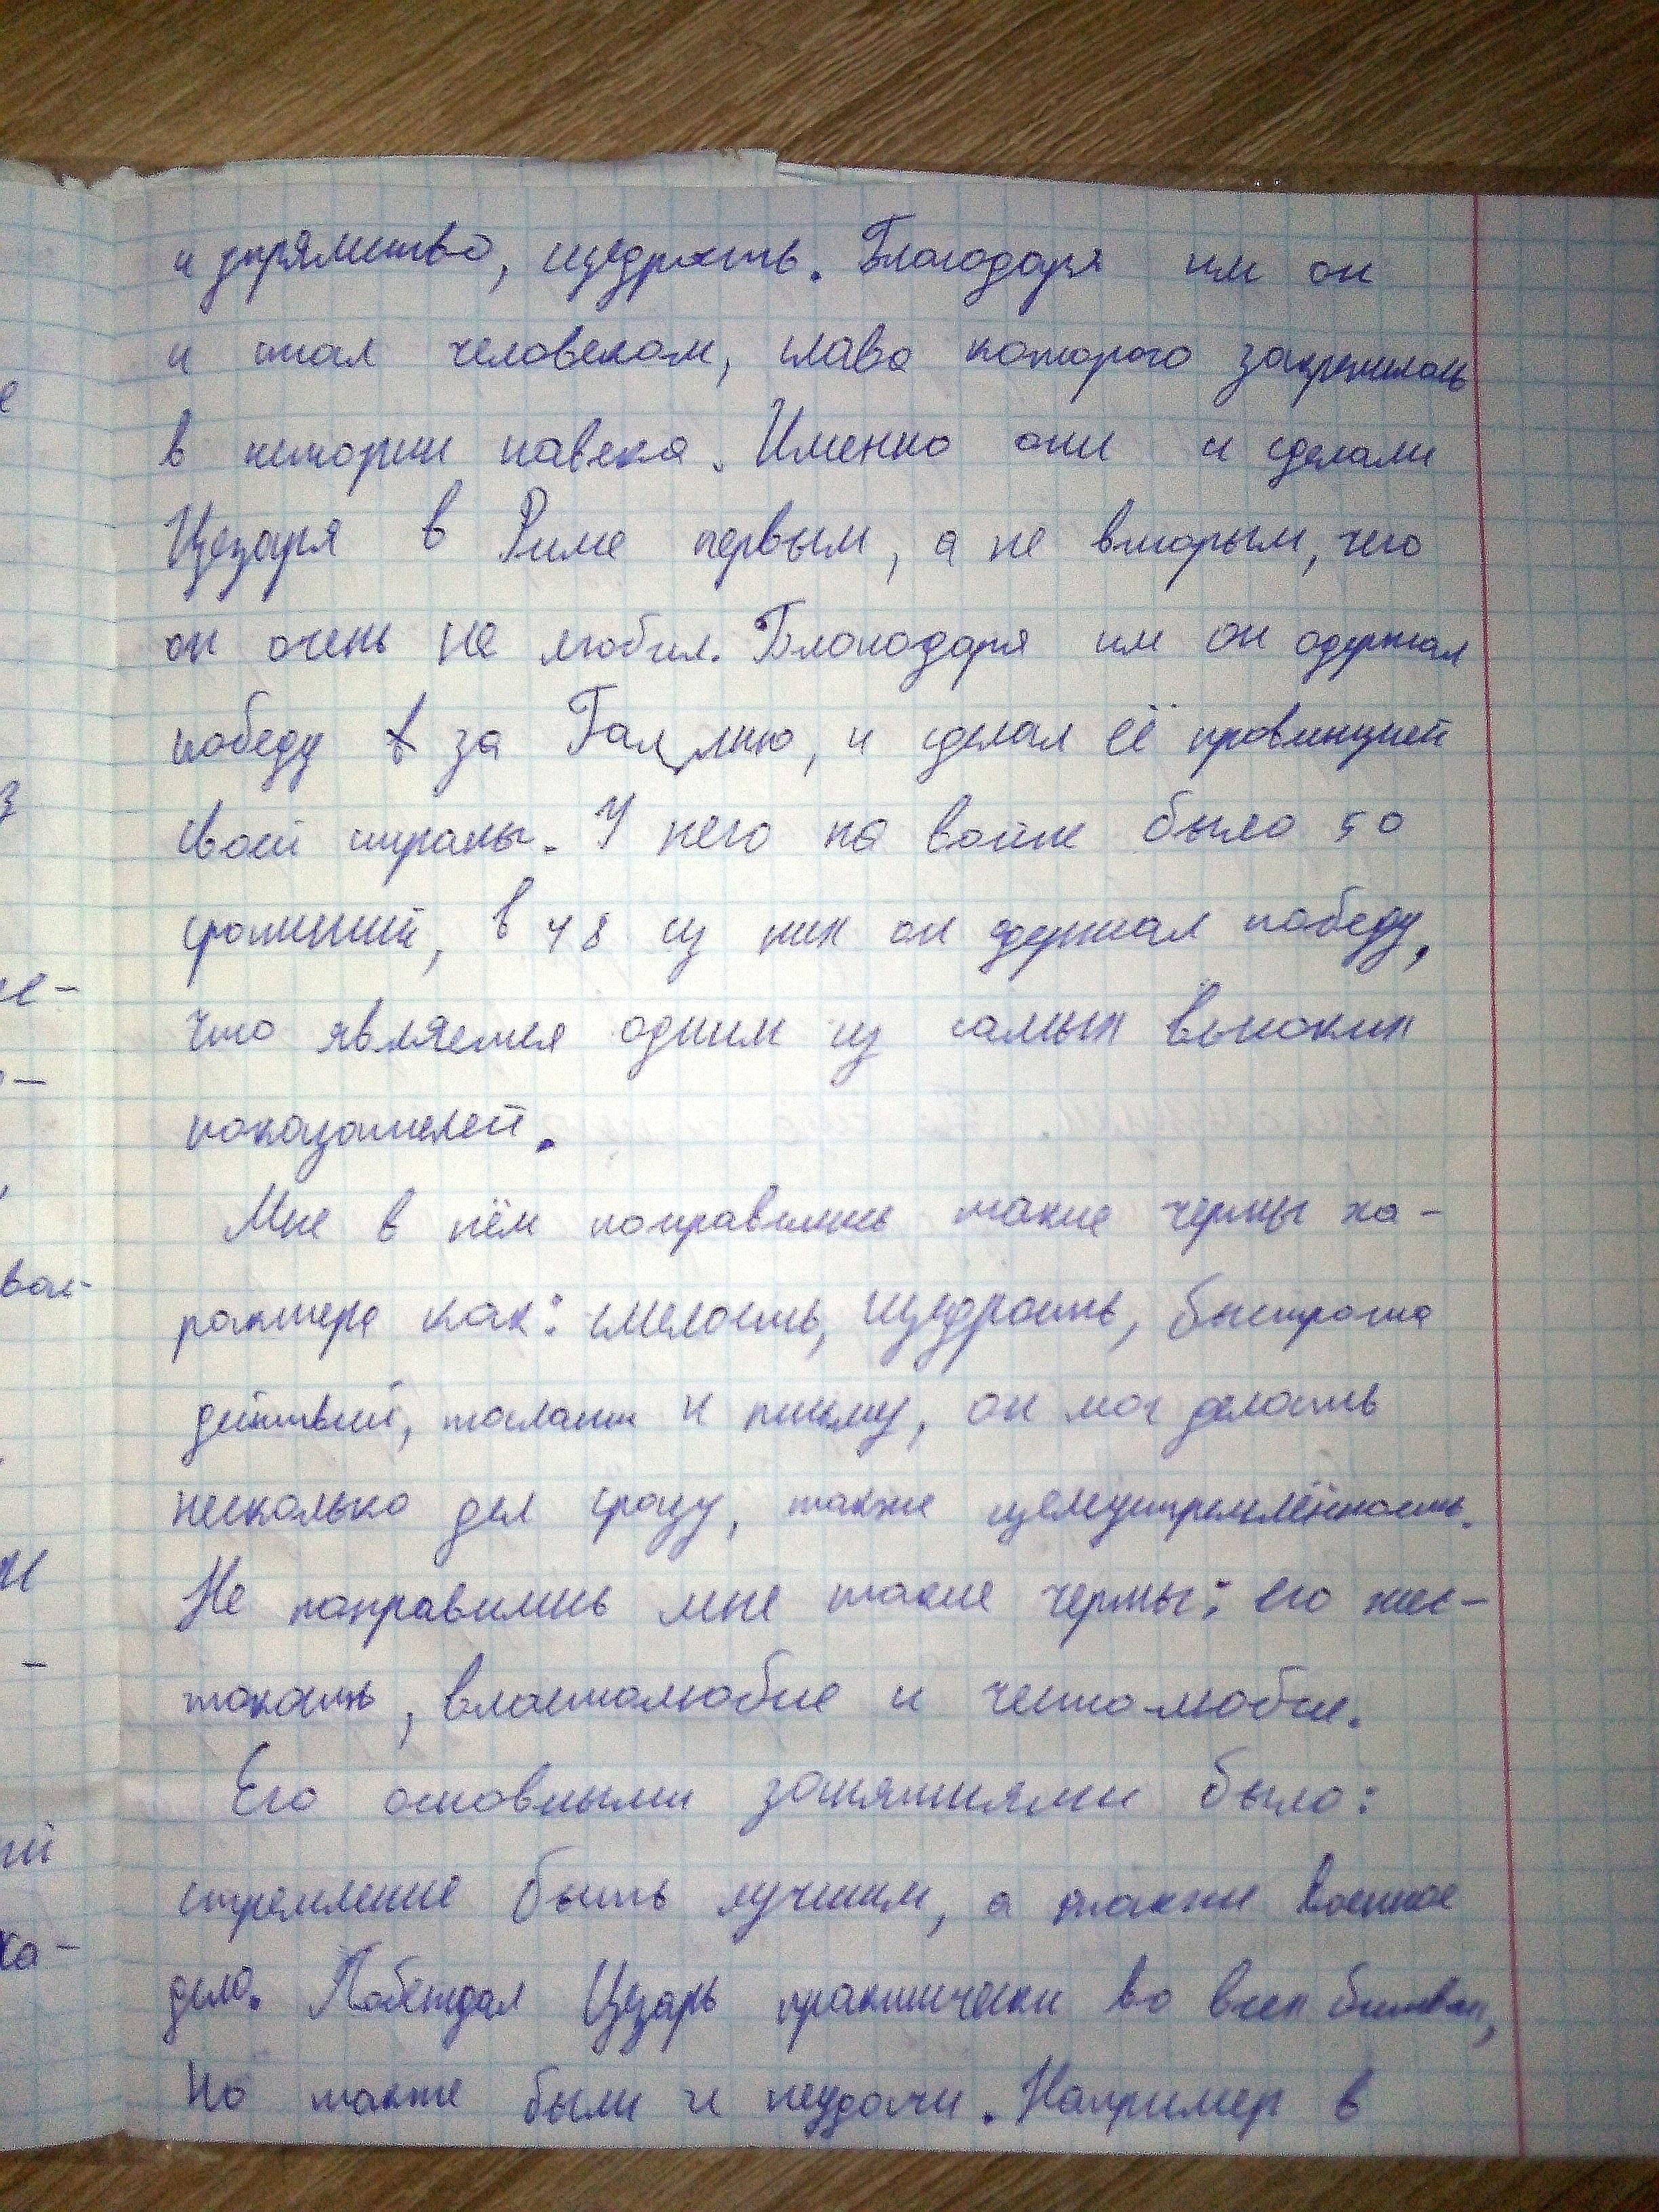 и упрямство, щедрость. Благодаря им он
и стал человеком, слава которого закрепилась
в истории навека. Именно они и сделали
Цезаря в Риме первым, а не вторым, чего
он очень не любил. Благодаря им он одержал
победу за Галлию, и сделал её провинцией
своей страны. У него на войне было 50
сражений, в 48 из них он одержал победу,
что является одним из самых высоких
показателей.
Мне в нём понравились такие черты ха-
рактера как: смелость, щедрость, быстрота
действий, талант к письму, он мог делать
несколько дел сразу, также целеустремлённость.
Не понравились мне такие черты: его жес-
токость, властолюбие и честолюбие.
Его основными занятиями было:
стремление быть лучшим, а также военное
дело. Побеждал Цезарь практически во всех битвах,
но также были и неудачи. Например в
е
з
же-
-
вал-
и
-
ий
ка-